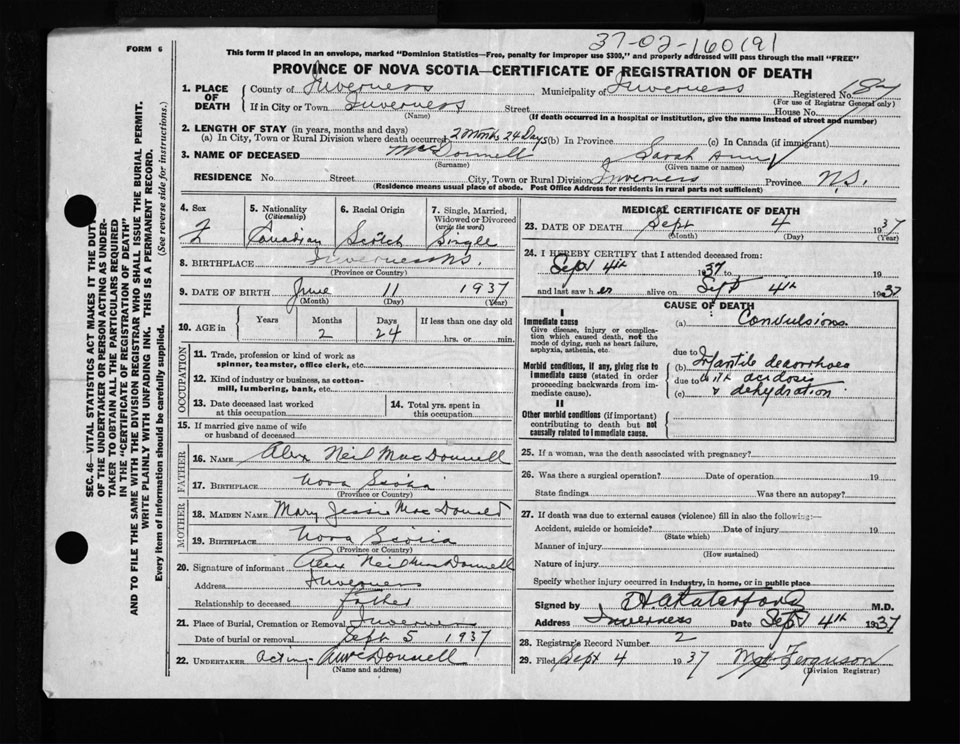 37-02-160191
FORM 6
This form if placed in an envelope, marked "Dominion Statistics—Free, penalty for improper use $300," and properly addressed will pass through the mail "FREE"
PROVINCE OF NOVA SCOTIA—CERTIFICATE OF REGISTRATION OF DEATH
SEC. 46—VITAL STATISTICS ACT MAKES IT THE DUTY
OF THE UNDERTAKER OR PERSON ACTING AS UNDER-
TAKER TO OBTAIN ALL THE PARTICULARS REQUIRED
IN THE "CERTIFICATE OF REGISTRATION OF DEATH"
AND TO FILE THE SAME WITH THE DIVISION REGISTRAR WHO SHALL ISSUE THE BURIAL PERMIT.
WRITE PLAINLY WITH UNFADING INK. THIS IS A PERMANENT RECORD.
Every item of information should be carefully supplied. (See reverse side for instructions.)
1. PLACE OF DEATH County of Inverness Municipality of Inverness Registered No.
(For use of Registrar General only)
If in City or Town Inverness Street House No.
(Name) (If death occurred in a hospital or institution, give the name instead of street and number)
2. LENGTH OF STAY (in years, months and days)
(a) In City, Town or Rural Division where death occurred 2 Months 24 Days (b) In Province (c) In Canada (if immigrant)
3. NAME OF DECEASED MacDonnell Sarah Ann
(Surname) (Given name or names)
RESIDENCE No. Street City, Town or Rural Division Inverness Province N.S.
(Residence means usual place of abode. Post Office Address for residents in rural parts not sufficient)
4. Sex 5. Nationality (Citizenship) 6. Racial Origin 7. Single, Married, Widowed or Divorced (write the word)
F Canadian Scotch Single
8. BIRTHPLACE Inverness N.S.
(Province or Country)
9. DATE OF BIRTH June 11 1937
(Month) (Day) (Year)
10. AGE in Years Months Days If less than one day old
2 24 hrs. or min.
OCCUPATION
11. Trade, profession or kind of work as
spinner, teamster, office clerk, etc.
12. Kind of industry or business, as cotton-
mill, lumbering, bank, etc.
13. Date deceased last worked
at this occupation
14. Total yrs. spent in
this occupation
15. If married give name of wife
or husband of deceased
FATHER
16. NAME Alex Neil MacDonnell
17. BIRTHPLACE Nova Scotia
(Province or Country)
MOTHER
18. MAIDEN NAME Mary Jessie MacDonald
19. BIRTHPLACE Nova Scotia
(Province or Country)
20. Signature of informant Alex Neil MacDonnell
Address Inverness
Relationship to deceased father
21. Place of Burial, Cremation or Removal Inverness
Date of burial or removal Sept 5 1937
22. UNDERTAKER acting MacDonnell
(Name and address)
MEDICAL CERTIFICATE OF DEATH
23. DATE OF DEATH Sept 4 1937
(Month) (Day) (Year)
24. I HEREBY CERTIFY that I attended deceased from:
Sept 4th 1937 to 19
and last saw her alive on Sept 4th 1937
CAUSE OF DEATH
I
Immediate cause
Give disease, injury or complica-
tion which caused death, not the
mode of dying, such as heart failure,
asphyxia, asthenia, etc.
(a) Convulsions
due to
Morbid conditions, if any, giving rise to
immediate cause (stated in order
proceeding backwards from im-
mediate cause).
(b) Infantile diarrhoea
due to with acidosis
(c) & dehydration
II
Other morbid conditions (if important)
contributing to death but not
causally related to immediate cause.
25. If a woman, was the death associated with pregnancy?
26. Was there a surgical operation? Date of operation 19
State findings Was there an autopsy?
27. If death was due to external causes (violence) fill in also the following:—
Accident, suicide or homicide? Date of injury 19
(State which)
Manner of injury
(How sustained)
Nature of injury
Specify whether injury occurred in industry, in home, or in public place
Signed by M.D.
Address Inverness Date Sept 4th 1937
28. Registrar's Record Number 2
29. Filed Sept 4 1937 Ferguson
(Division Registrar)